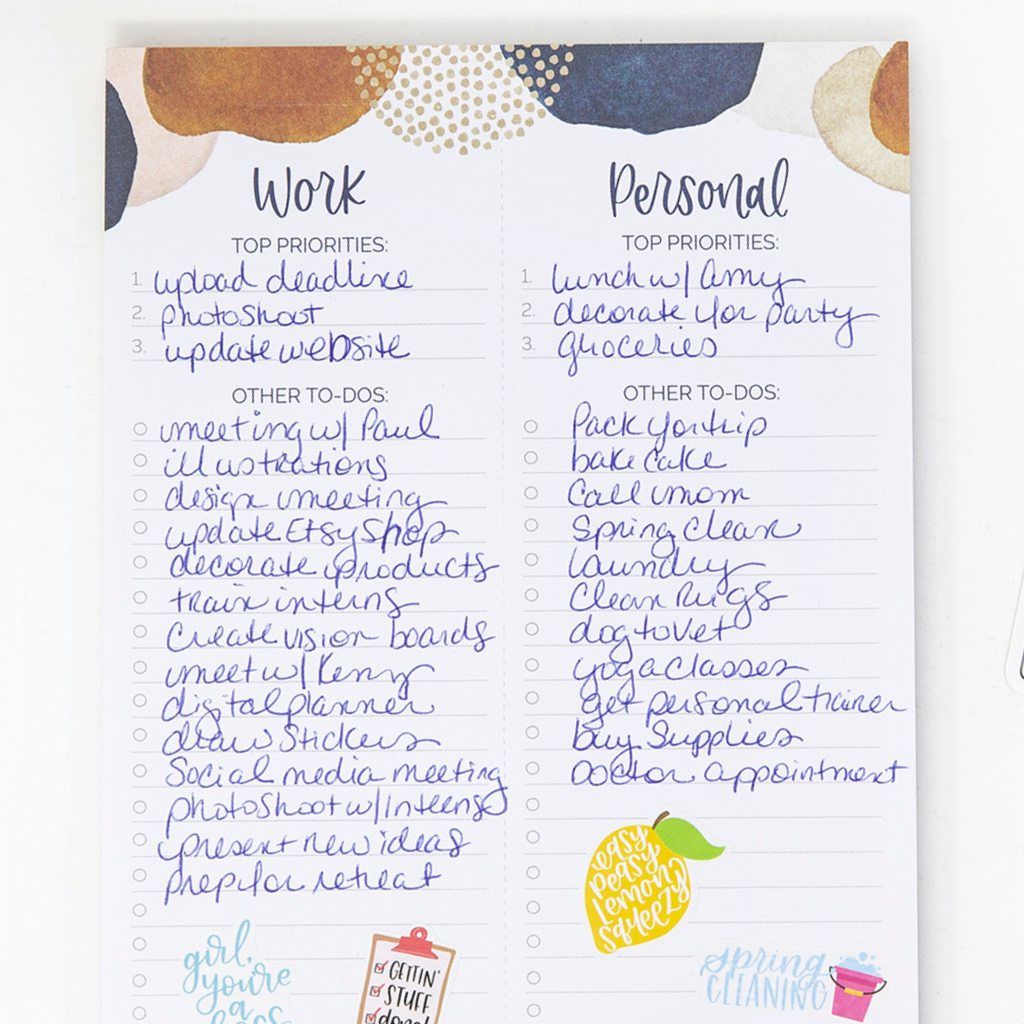 Work
TOP PRIORITIES:
1. upload deadline
2. photoshoot
3. update website
OTHER TO-DOS:
meeting w/ Paul
illustrations
design meeting
update Etsy shop
decorate products
train interns
Create vision boards
meet w/ Kenny
digital planner
draw stickers
Social media meeting
photoshoot w/ interns
present new ideas
prep for retreat
girl,
you're
a
boss
GETTIN'
STUFF
done!
Personal
TOP PRIORITIES:
1. lunch w/ Amy
2. decorate for party
3. groceries
OTHER TO-DOS:
Pack for trip
bake cake
Call mom
Spring clean
laundry
Clean Rugs
dog to vet
yoga classes
get personal trainer
buy Supplies
Doctor appointment
easy
peasy
lemon
squeezy
spring
CLEANING